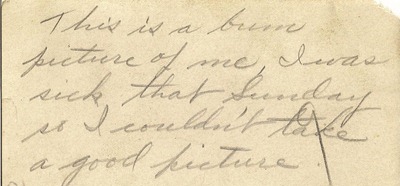 This is a bum
picture of me, I was
sick that Sunday
so I couldn't take
a good picture.